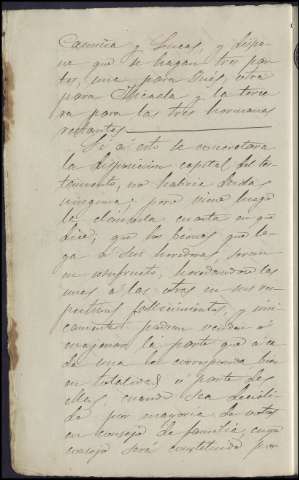 Camiña y Lucas, y dispo-
ne que se hagan tres par-
tes, una para Inés, otra
para Micaela y la terce-
ra para las tres hermanas
restantes
Si a esto se concretara
la disposición capital del tes-
tamento, no habría dudas
ninguna; pero viene luego
la clausula cuarta en que
dice; que los bienes que le-
ga á sus herederas, seran
en usufructo, heredandose las
unas a las otras en sus res-
pectivos fallecimientos, y úni-
camente podran vender ó
enagenar la parte que a ca-
da una le corresponda bien
en totalidad ó parte de
ellas, cuando sea decidi-
do por mayoría de votos
en consejo de familia; cuyo
consejo será constituido por